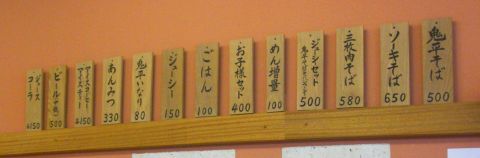 鬼平そば
500
ソーキそば
650
三枚肉そば
580
ジューシーセット
500
めん増量
100
お子様セット
400
ごはん
100
ジューシー
150
鬼平いなり
80
あんみつ
330
アイスコーヒー
アイスティー
各150
ビール(中瓶)
500
ジュース
コーラ
各150